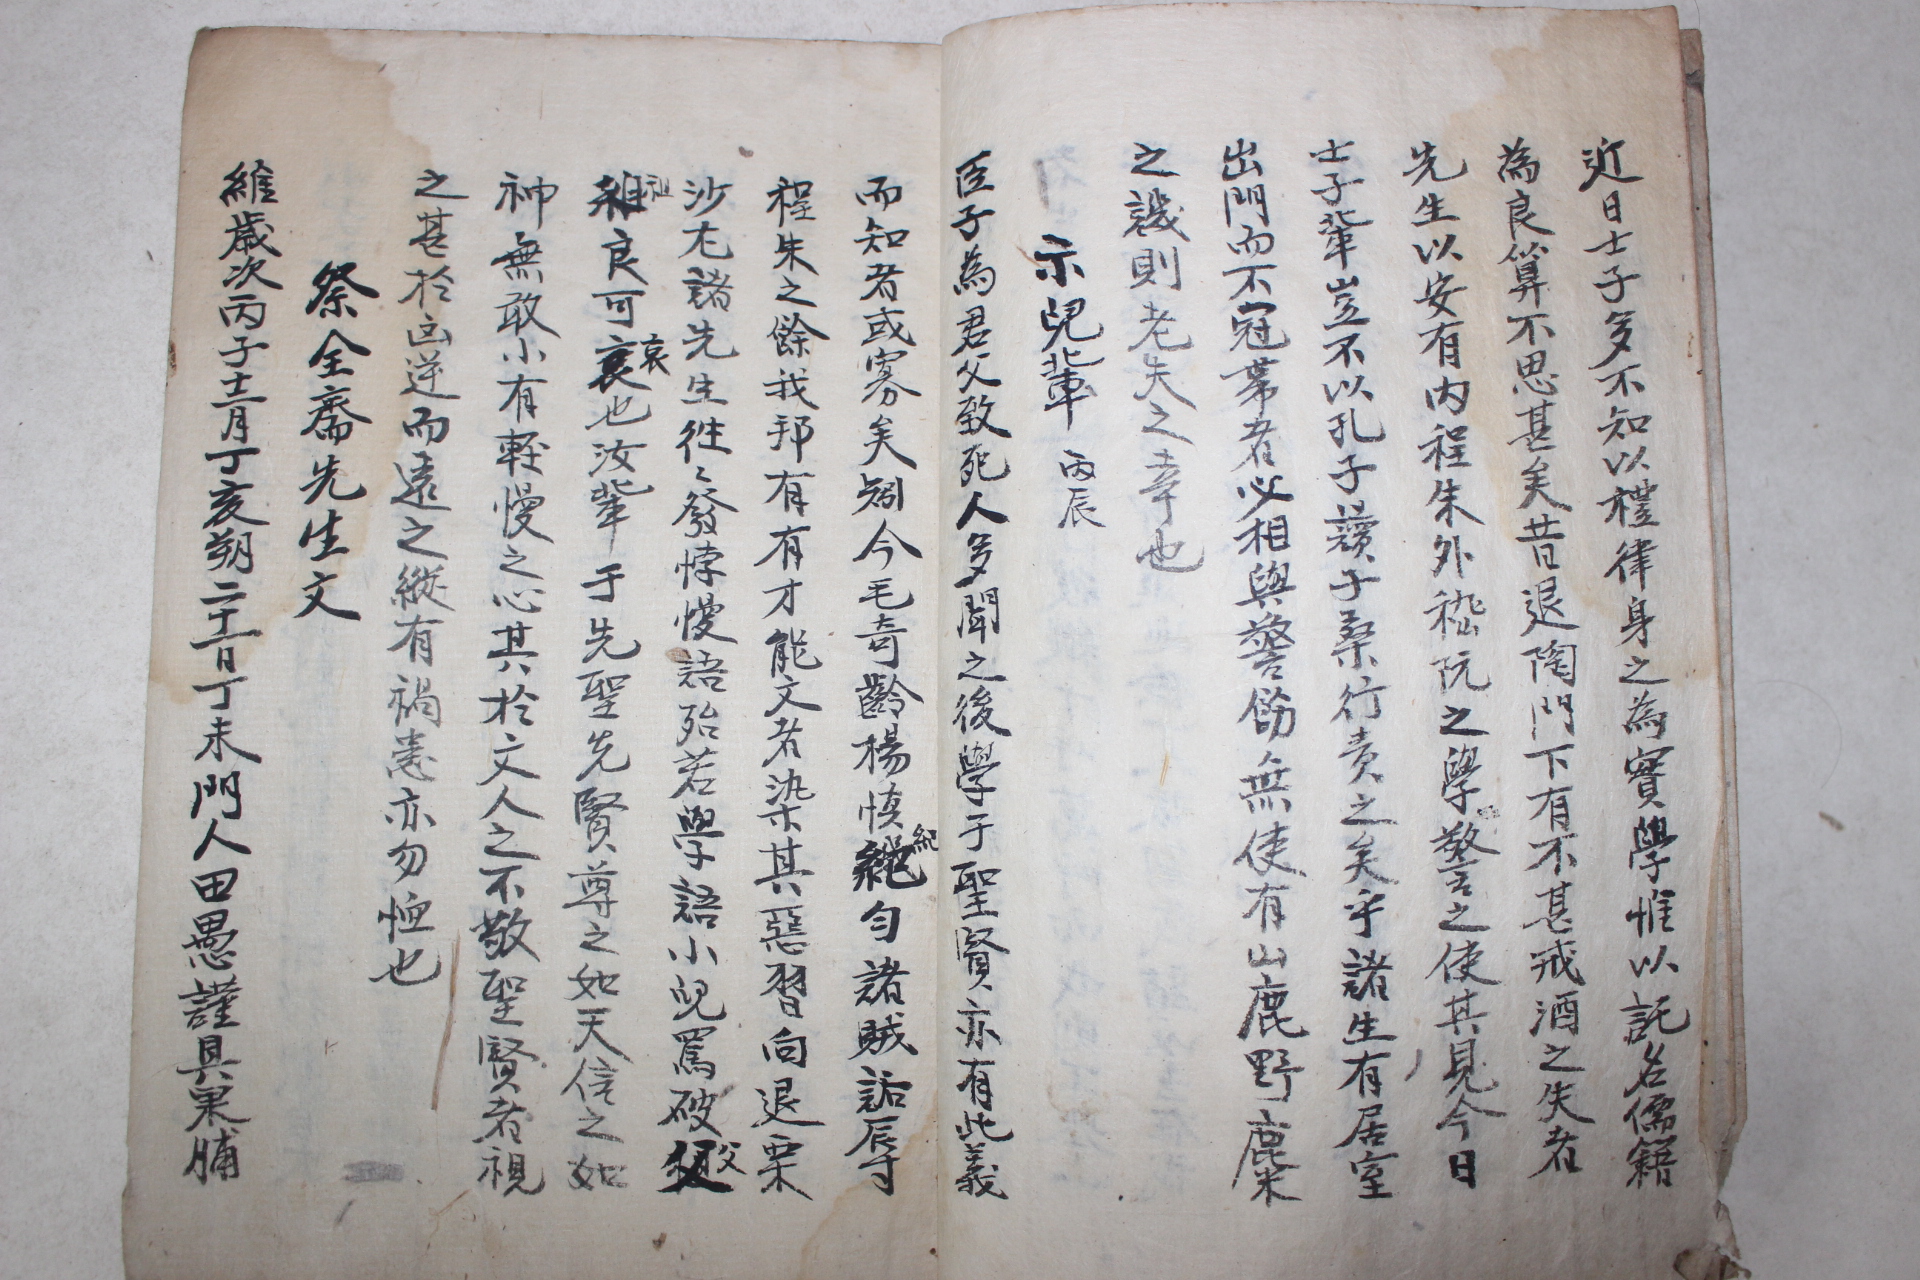 近日士子多不知以禮律身之為實學惟以託名儒籍
為良算不思甚矣昔退陶門下有不甚戒酒之失者
先生以安有內程朱外嵇阮之學警之使其見今日
士子輩豈不以孔子議子桑行責之矣乎諸生有居室
出門而不冠帶者必相與警飭無使有山鹿野麋
之譏則老夫之幸也
示兒輩 丙辰
臣子為君父致死人多聞之後學于聖賢亦有此義
而知者或寡矣矧今毛奇齡楊慎紀勻諸賊詬辱
程朱之餘我邦有有才能文者染其惡習向退栗
沙尤諸先生往〻發悖慢語殆若學語小兒罵破父
祖良可哀也汝輩于先聖先賢尊之如天信之如
神無敢小有輕慢之心其於文人之不敬聖賢者視
之甚於凶逆而遠之縱有禍患亦勿恤也
祭全齋先生文
維歲次丙子十二月丁亥朔二十一日丁未門人田愚謹具果脯